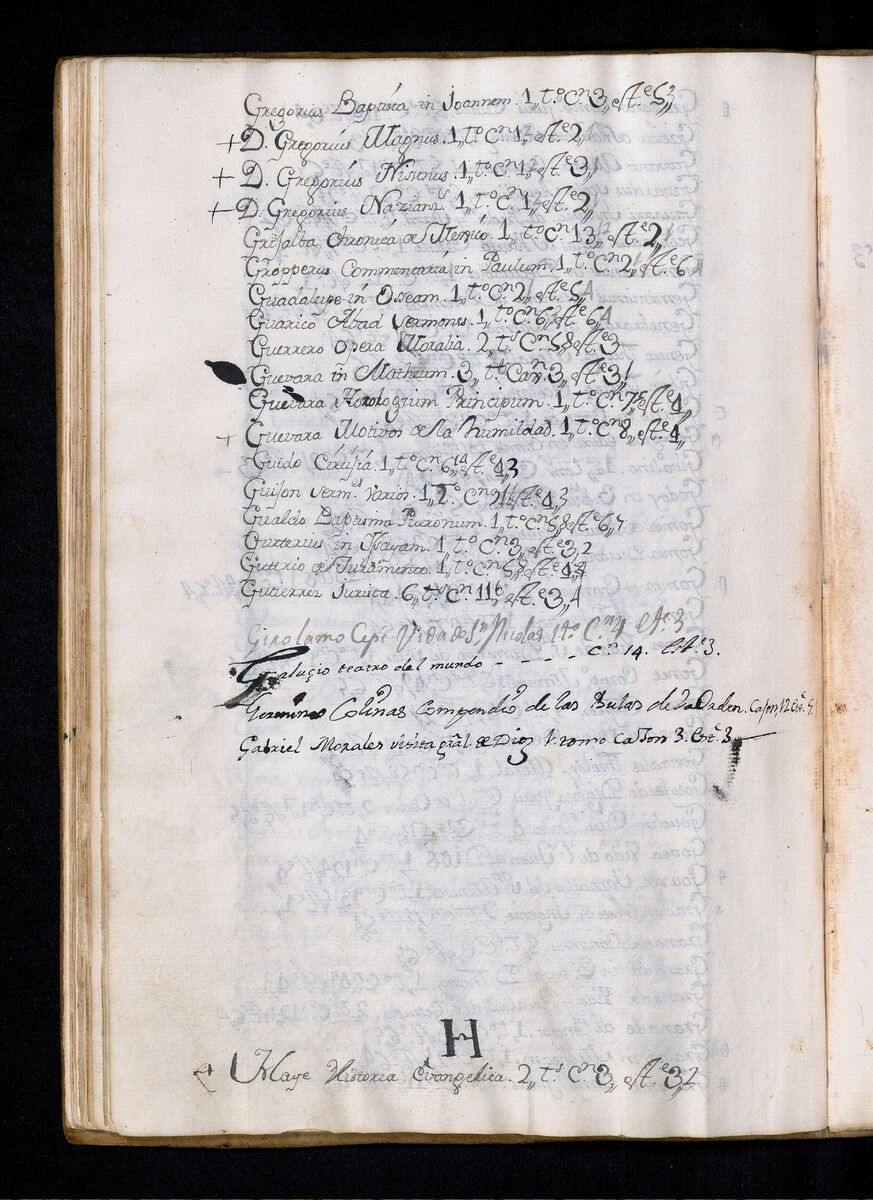 Gregorius Baptista in Joannem. 1,, t.º C.n 3,, est.e 5,,
+ D. Gregorius Magnus. 1,, t.º C.n 1,, est.e 2,,
+ D. Gregorius Nisenus. 1,, t.º C.n 1,, est.e 3,,
+ D. Gregorius Nazians. 1,, t.º C.n 1,, est.e 2,,
Grijalba Chronica de Mexico. 1,, t.º C.n 13,, est.e 2,,
Gropperus Commentaria in Paulum. 1,, t.º C.n 2,, est.e 6
Guadalupe in Osseam. 1,, t.º C.n 2,, est.e 5,,
Guarico Abad sermones. 1,, t.º C.n 6,, est.e 6,,
Guerrero opera Moralia. 2,, t.s C.n 5,, est.e 3
Guevara in Matheum. 3,, t.s Can. 3,, est.e 3,,
Guevara Horologium Principum. 1,, t.º C.n 7,, est.e 4,,
+ Guevara Motivos de la humildad. 1,, t.º C.n 8,, est.e 4,,
Guido Cirujia. 1,, t.º C.n 6,, est.e 4,, 3
Guison serm.es varios. 1,, t.º C.n est.e 4,, 3
Gualdo Baptisma Puerorum. 1,, t.º C.n 5,, est.e 6,, 7
in Isayam. 1,, t.º C.n 3,, est.e 3,, 2
de Juramento. 1,, t.º C.n 5,, est.e 4,,
Gutierrez Jurista. 6,, t.s C.n 11,, est.e 3,, 4
Girolamo Cepi Vida de S.n Nicolas 1 t.º C.n 4 est.e 3
Galucio teatro del mundo - - - - C.n 14. Est.e 3.
Geronimo Colinas Compendio de las Bulas de la Orden. Cajon 12 Est.e
Gabriel Morales visita gral. de Dios 1. tomo Cajon 3. Est.e 3.
H
+ Haye Historia Evangelica. 2,, t.s C.n 3,, est.e 3,, 2